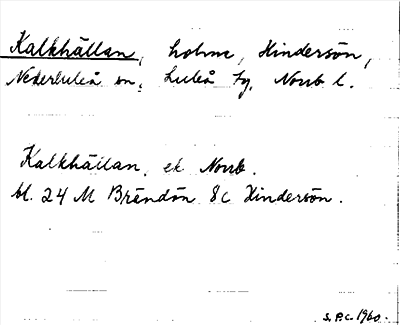 Kalkhällan, holme, Hindersön,
Nederluleå sn, Luleå tg, Norrb l.
Kalkhällan, ek Norrb.
bl. 24 M Brändön 8c Hindersön.
S.P.C. 1960.